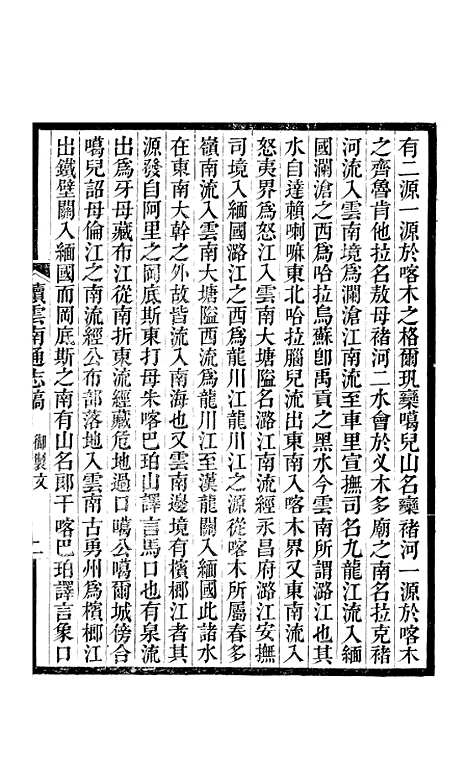 有二源一源於喀木之格爾玑蘗噶兒山名蘗禇河一源於喀木
之齊魯肯他拉名敖母禇河二水會於义木多廟之南名拉克禇
河流入雲南境爲瀾滄江南流至車里宣撫司名九龍江流入緬
國瀾滄之西爲哈拉烏蘇卽禹貢之黑水今雲南所謂潞江其
水自達賴喇嘛東北哈拉腦兒流出東南入喀木界又東南流入
怒夷界爲怒江入雲南大塘隘名潞江南流經永昌府潞江安撫
司境入緬國潞江之西爲龍川江龍川江之源從喀木所屬春多
嶺南流入雲南大塘隘西流爲龍川江至漢龍入緬國此諸水
在東南大幹之外故皆流入南海也又雲南邊境有檳榔江者其
源發自阿里之岡底斯東打母朱喀巴珀山譯言馬口也有泉流
出爲牙母藏布江從南折東流經藏危地過口噶公噶爾城傍合
噶兒詔母倫江之南流經公布部落地入雲南古勇州爲檳榔江
出鐵壁關入緬國而岡底斯之南有山名郎干喀巴珀譯言象口
續雲南通志稿 御製文 二